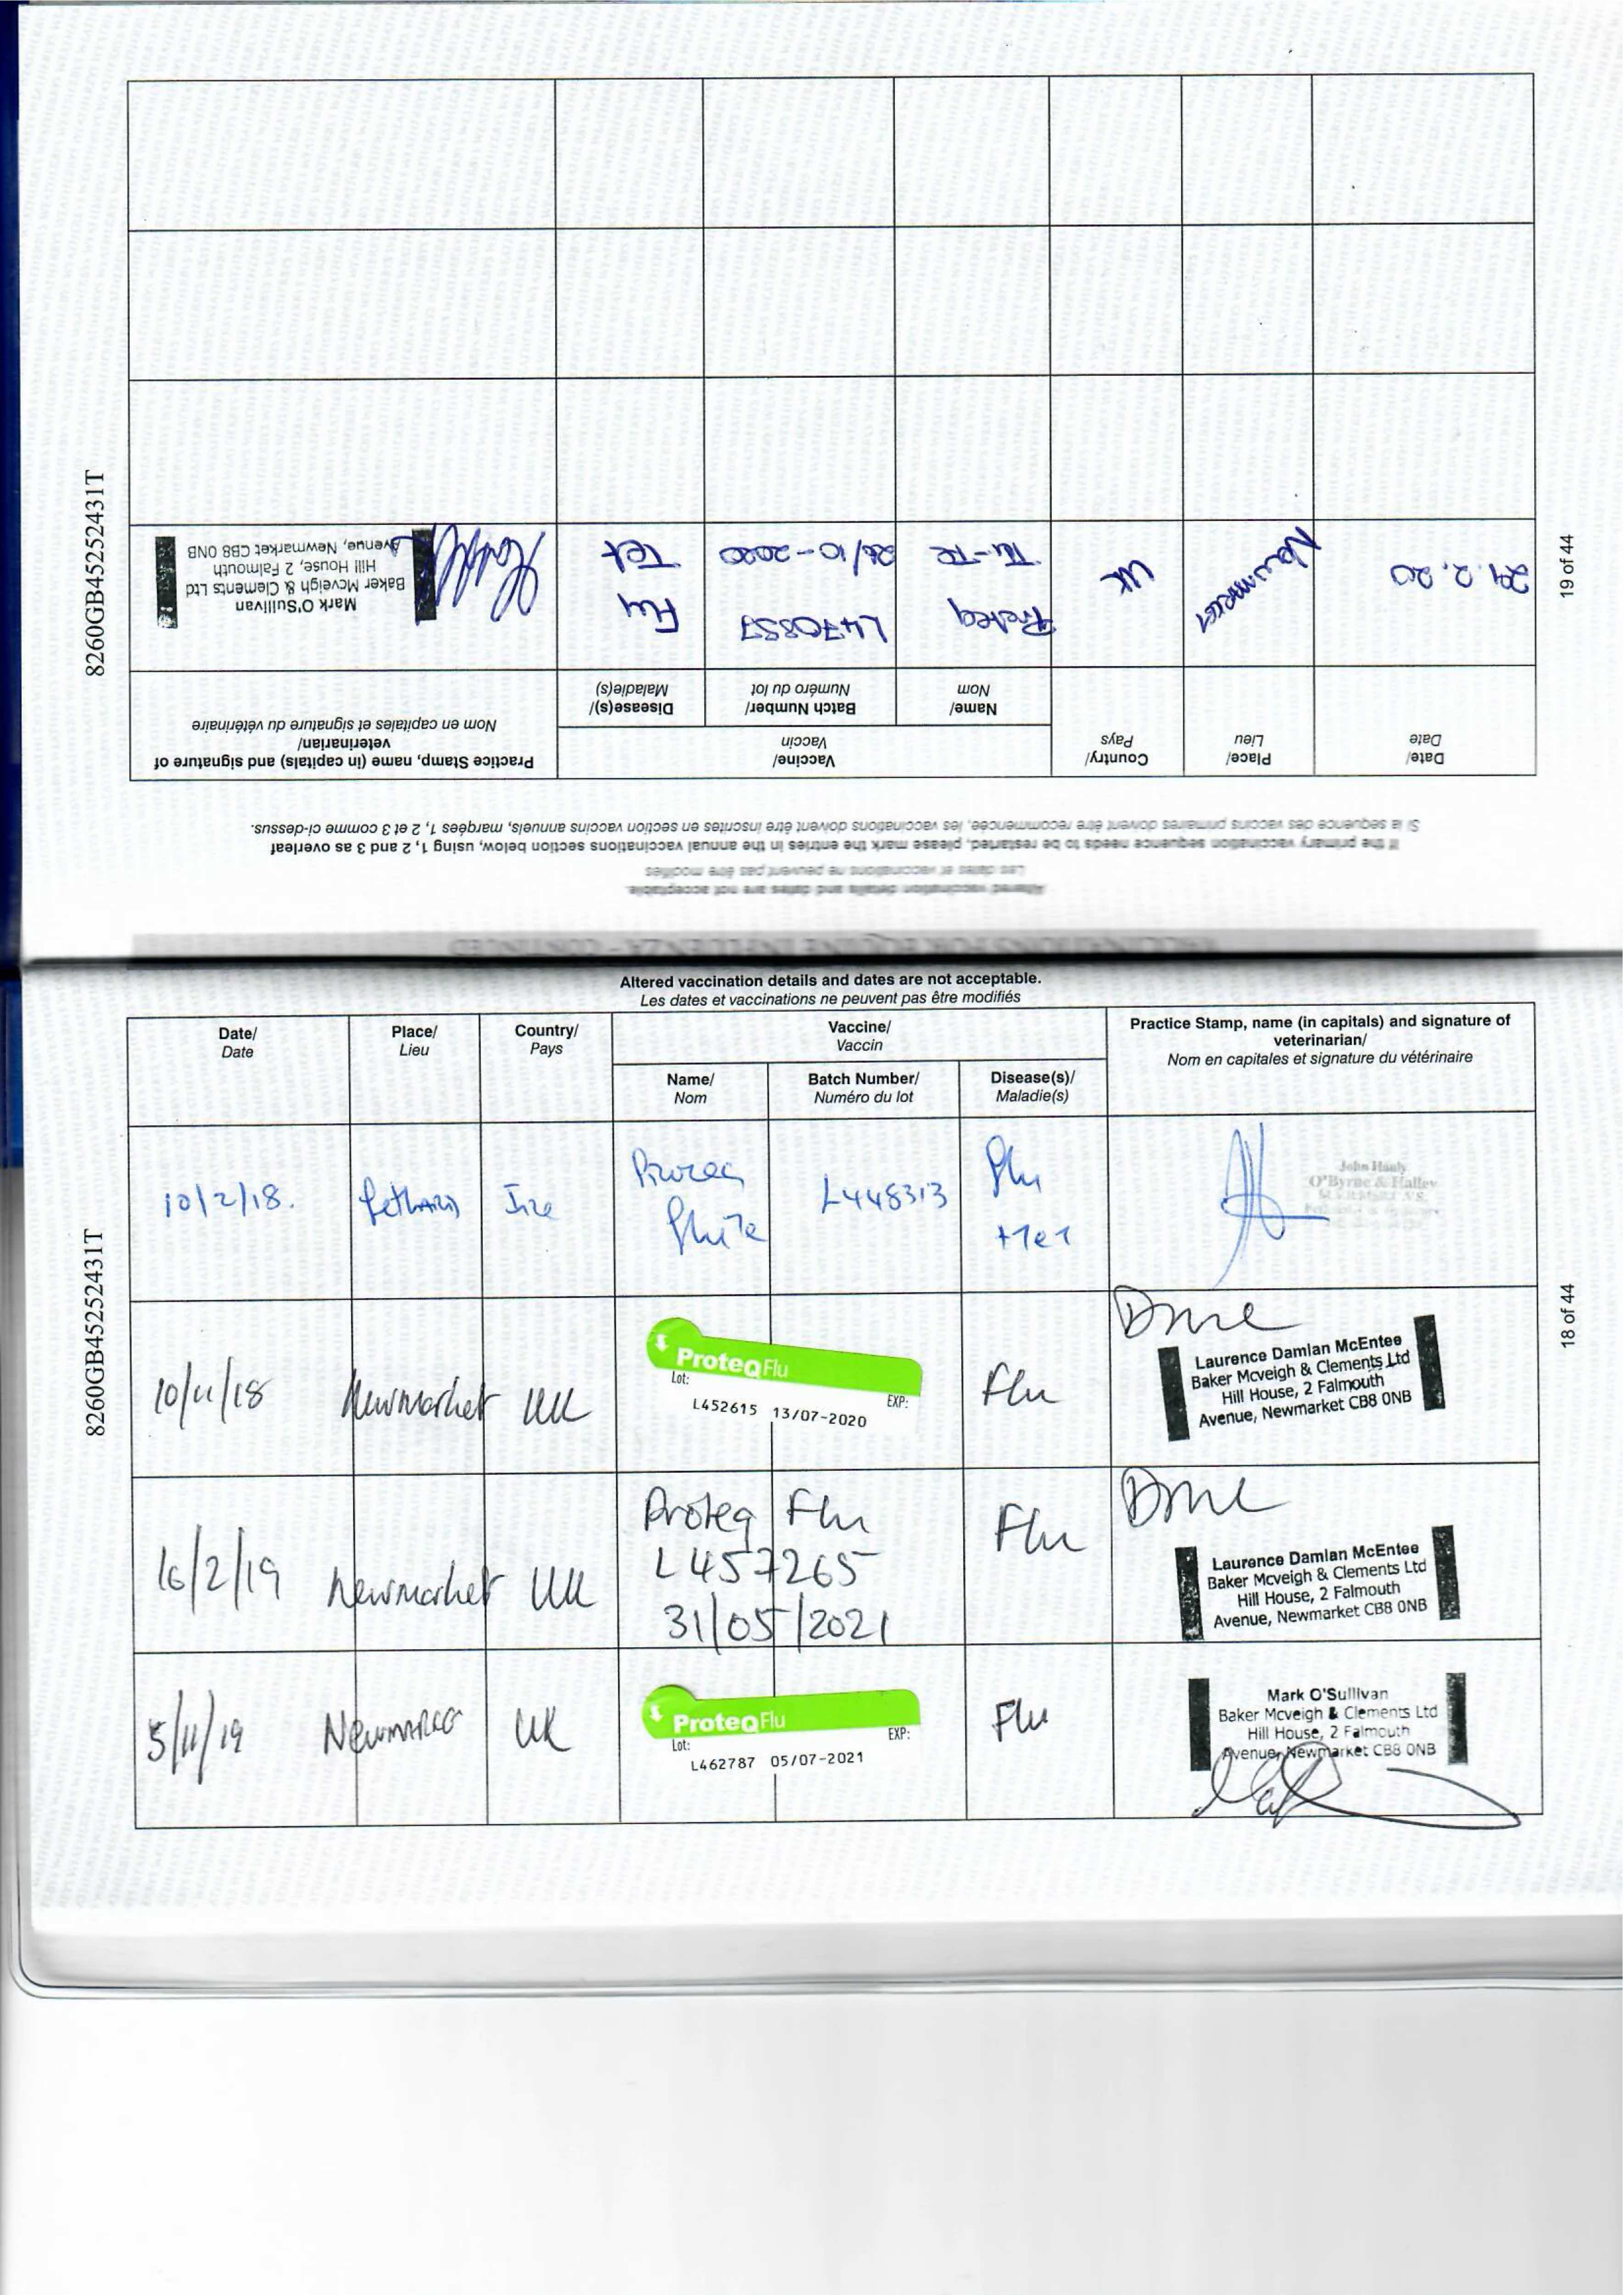 8260GB45252431T
19 of 44
VACCINATIONS FOR EQUINE INFLUENZA - CONTINUED
Altered vaccination details and dates are not acceptable.
Les dates et vaccinations ne peuvent pas être modifiés
If the primary vaccination sequence needs to be restarted, please mark the entries in the annual vaccinations section below, using 1, 2 and 3 as overleaf
Si la sequence des vaccins primaires doivent être recommencée, les vaccinations doivent être inscrites en section vaccins annuels, marqées 1, 2 et 3 comme ci-dessus.
Date/
Date
Place/
Lieu
Country/
Pays
Vaccine/
Vaccin
Name/
Nom
Batch Number/
Numéro du lot
Disease(s)/
Maladie(s)
Practice Stamp, name (in capitals) and signature of
veterinarian/
Nom en capitales et signature du vétérinaire
Newmarket
UK
Proteq
L470857
Flu
Tet
Mark O'Sullivan
Baker Mcveigh & Clements Ltd
Hill House, 2 Falmouth
Avenue, Newmarket CB8 0NB
8260GB45252431T
18 of 44
Altered vaccination details and dates are not acceptable.
Les dates et vaccinations ne peuvent pas être modifiés
Date/
Date
Place/
Lieu
Country/
Pays
Vaccine/
Vaccin
Name/
Nom
Batch Number/
Numéro du lot
Disease(s)/
Maladie(s)
Practice Stamp, name (in capitals) and signature of
veterinarian/
Nom en capitales et signature du vétérinaire
10/2/18.
Fethard
Ire
L448313
Flu
+Tet
John Halley
O'Byrne & Halley
10/11/18
Newmarket
UK
ProteqFlu
Lot:
EXP:
L452615 13/07-2020
Flu
Laurence Damian McEntee
Baker Mcveigh & Clements Ltd
Hill House, 2 Falmouth
Avenue, Newmarket CB8 0NB
16/2/19
Newmarket
UK
Proteq Flu
L457265
31/05/2021
Flu
Laurence Damian McEntee
Baker Mcveigh & Clements Ltd
Hill House, 2 Falmouth
Avenue, Newmarket CB8 0NB
5/11/19
Newmarket
UK
ProteqFlu
Lot:
EXP:
L462787 05/07-2021
Flu
Mark O'Sullivan
Baker Mcveigh & Clements Ltd
Hill House, 2 Falmouth
Avenue, Newmarket CB8 0NB